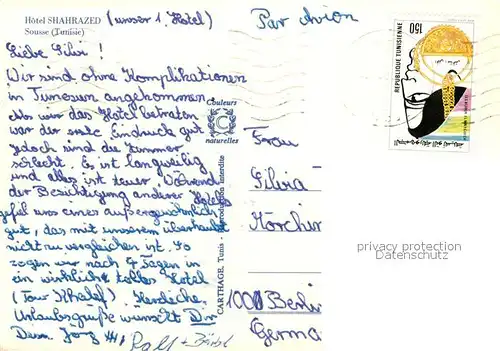 Hôtel SHAHRAZED (unser 1. Hotel)
Sousse (Tunisie)
Par Avion
Liebe Silvi!
Wir sind ohne Komplikationen
in Tunesien angekommen.
Als wir das Hotel betraten
war der erste Eindruck gut
jedoch sind die Zimmer
schlecht. Es ist langweilig
und alles ist teuer. Während
der Besichtigung anderer Hotels
gefiel uns eines außergewöhnlich
gut, das mit unserem überhaupt
nicht zu vergleichen ist. So
zogen wir nach 4 Tagen in
ein wirklich tolles Hotel
(Tour Khalef). Herzliche
Urlaubsgrüße wünscht Dir
Dein Jörg
Ralf +
Couleurs
C
naturelles
CARTHAGE, Tunis - Reproduction interdite
Frau
Silvia
1000 Berlin
Germa
REPUBLIQUE TUNISIENNE
150
privacy protection
Datenschutz